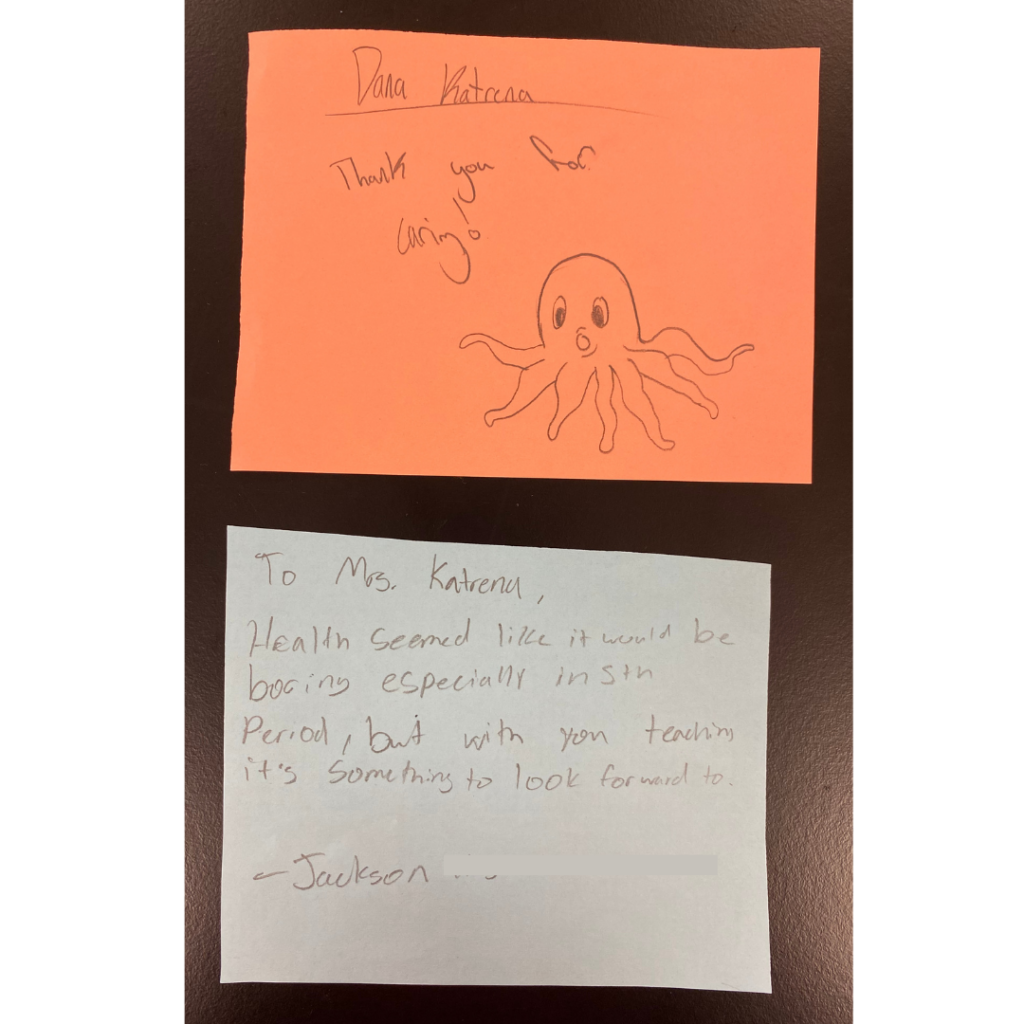 Dana Katrena
Thank you for
caring!
To Mrs. Katrena,
Health seemed like it would be
boring especially in 5th
Period, but with you teaching
it's something to look forward to.
- Jackson